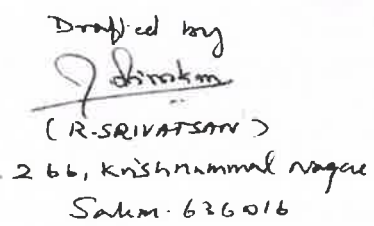 Drafted by
(R. SRIVATSAN)
266, Krishnammal Nagar
Salem. 636016